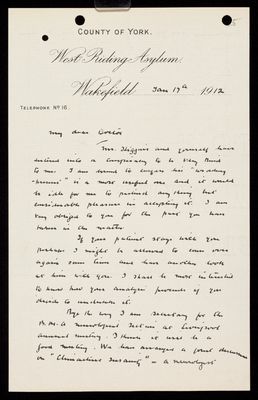 5
COUNTY OF YORK.
West Riding Asylum.
Wakefield Jan 17th 1912
TELEPHONE No 16.
My dear Doctor
Mrs. Higgins and yourself have
entered into a conspiracy to be very kind
to me. I am bound to confess his "
" is a most useful one and it would
be idle for me to pretend anything but
considerable pleasure in accepting it. I am
very obliged to you for the part you have
taken in the matter.
If your patient stays with you
perhaps I might be allowed to come over
again some time and have another look
at him with you. I shall be most interested
to know how your analysis proceeds if you
decide to undertake it.
Bye the way I am secretary for the
B.M.A. neurological section at Liverpool
annual meeting. I think it will be a
good meeting. We have arranged a joint discussion
on "Climacteric Insanity" – a neurologist